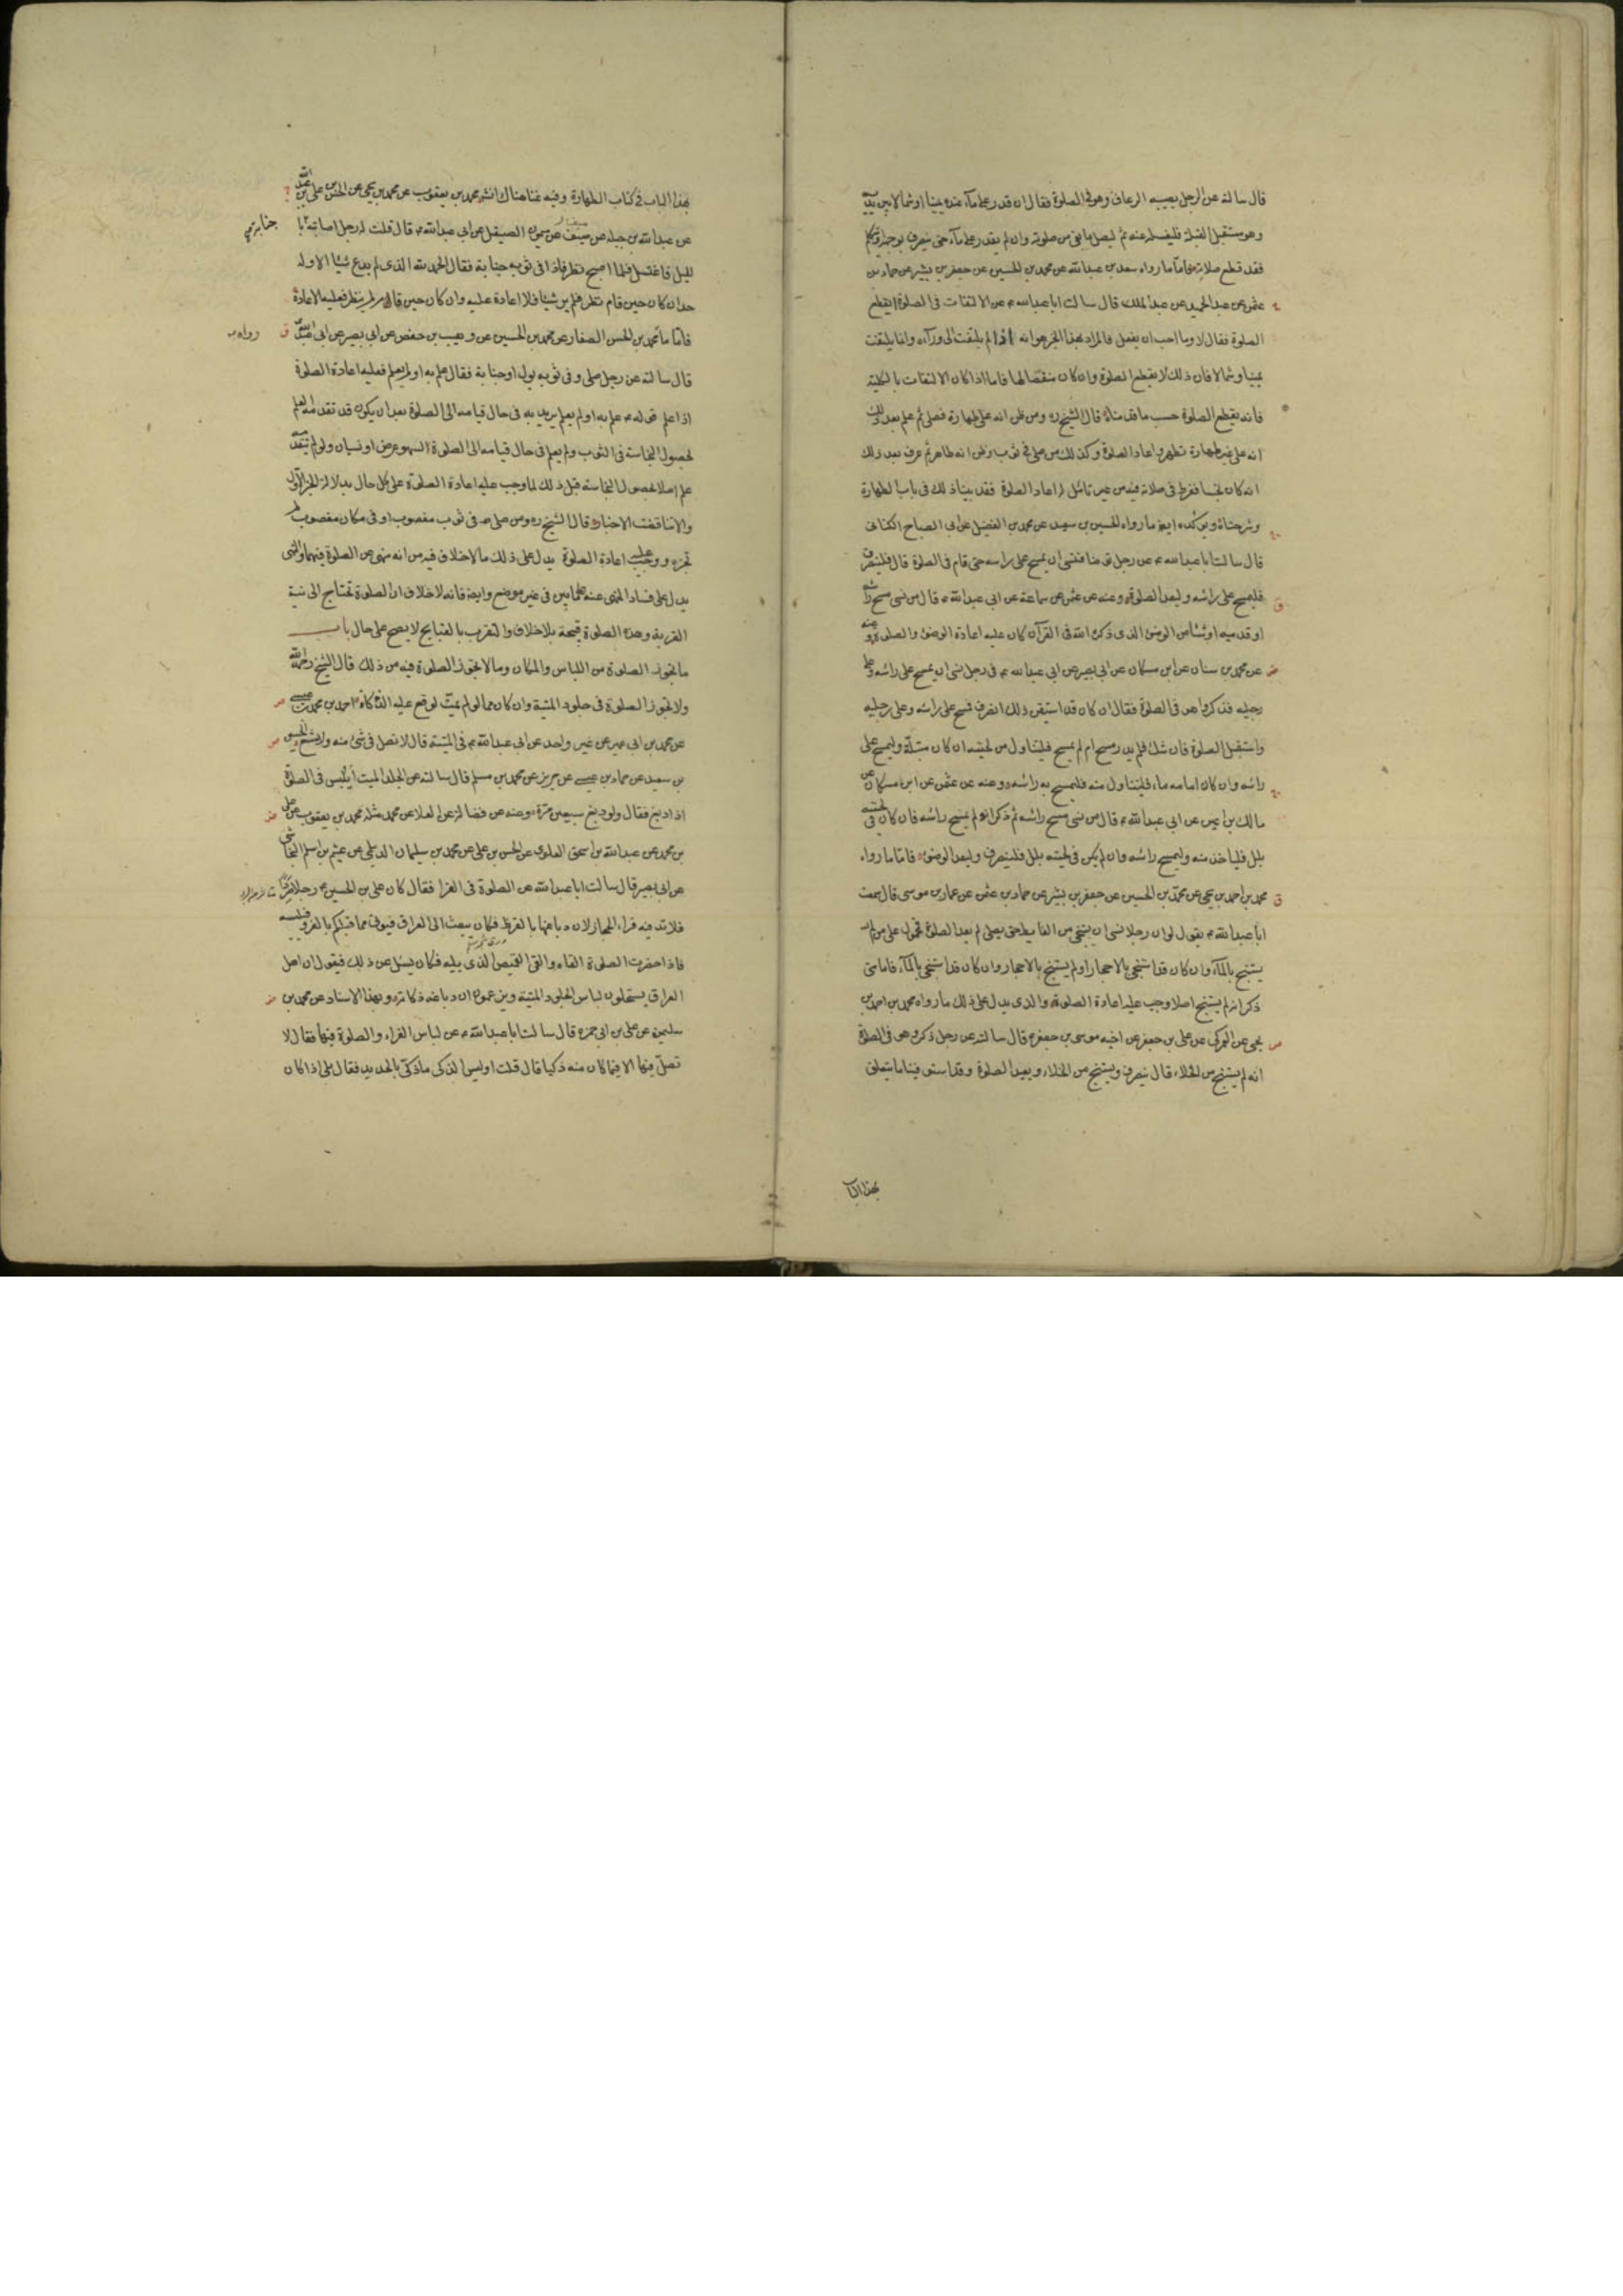 قال سالته عن الرجل يصيبه الرعاف وهو في الصلوة فقال ان قدر على مآء عنده يمينا او شمالا بين يديه
وهو مستقبل القبلة فليغسله عنه ثم ليصل ما بقى من صلوته وان لم يقدر على مآء حتى ينصرف بوجهه او يتكلم
فقد قطع صلاته فاما ما رواه سعد بن عبدالله عن محمد بن الحسين عن جعفر بن بشير عن حماد بن
عثمن عن عبد الحميد عن عبد الملك قال سالت ابا عبدالله ع عن الالتفات في الصلوة ايقطع
الصلوة فقال لا وما احب ان يفعل فالمراد بهذا الخبر هو انه اذا لم يلتفت الى ورآءه وانما يلتفت
يمينا وشمالا فان ذلك لا يقطع الصلوة وان كان منقصا لها فاما اذا كان الالتفات بالكلية
فانه يقطع الصلوة حسب ما قدمناه قال الشيخ ره ومن ظن انه على طهارة فصلى ثم علم بعد ذلك
انه على غير طهارة تطهر واعاد الصلوة وكذلك من صلى في ثوب وظن انه طاهر ثم عرف بعد ذلك
انه كان نجسا ففرط في صلاته فيه من غير تامل له اعاد الصلوة فقد بينا ذلك في باب الطهارة
وشرحناه ويوكده ايضا ما رواه الحسين بن سعيد عن محمد بن الفضيل عن ابي الصباح الكناني
قال سالت ابا عبدالله ع عن رجل توضا فنسى ان يمسح على راسه حتى قام في الصلوة قال فلينصرف
فليمسح على راسه وليعد الصلوة وعنه عن عثمن عن سماعة عن ابي عبدالله ع قال من نسى مسح راسه
او قدميه او شيئا من الوضوء الذى ذكره الله في القرآن كان عليه اعادة الوضوء والصلوة وعنه
عن محمد بن سنان عن ابن مسكان عن ابي بصير عن ابي عبدالله ع في رجل نسى ان يمسح على راسه وعلى
رجليه فذكر وهو في الصلوة فقال ان كان قد استيقن ذلك انصرف فمسح على راسه وعلى رجليه
واستقبل الصلوة فان شك فلم يدر مسح ام لم يمسح فليتناول من لحيته ان كان مبتلة وليمسح على
راسه وان كان امامه ماء فليتناول منه فليمسح به راسه وعنه عن عثمن عن ابن مسكان عن
مالك بن اعين عن ابي عبدالله ع قال من نسى مسح راسه ثم ذكر انه لم يمسح راسه فان كان في لحيته
بلل فلياخذ منه وليمسح راسه وان لم يكن في لحيته بلل فلينصرف وليعد الوضوء فاما ما رواه
محمد بن احمد بن يحيى عن محمد بن الحسين عن جعفر بن بشير عن حماد بن عثمن عن عمار بن موسى قال سمعت
ابا عبدالله ع يقول لو ان رجلا نسى ان يستنجي من الغايط حتى يصلي لم يعد الصلوة فمحمول على من لم
يستنج بالمآء وان كان قد استنجى بالاحجار او لم يستنج بالاحجار وان كان قد استنجى بالمآء فاما متى
ذكر انه لم يستنج اصلا وجب عليه اعادة الصلوة والذى يدل على ذلك ما رواه محمد بن احمد بن
يحيى عن العمركي عن علي بن جعفر عن اخيه موسى بن جعفر ع قال سالته عن رجل ذكر وهو في الصلوة
انه لم يستنج من الخلاء قال ينصرف ويستنج من الخلاء ويعيد الصلوة وقد استوفينا ما يتعلق
بهذا البا
بهذا الباب في كتاب الطهارة وفيه غنا هناك انشـ محمد بن يعقوب عن محمد بن يحيى عن الحسن بن علي بن عبد الله
عن عبدالله بن جبلة عن سيف عن ميمون الصيقل عن ابي عبدالله ع قال قلت له رجل اصابته جنابة با
لليل فاغتسل فلما اصبح نظر فاذا في ثوبه جنابة فقال الحمد لله الذى لم يدع شيئا الا وله
حد ان كان حين قام نظر فلم ير شيئا فلا اعادة عليه وان كان حين قام لم ينظر فعليه الاعادة
فاما ما رواه محمد بن الحسن الصفار عن محمد بن الحسين عن وهيب بن حفص عن ابي بصير عن ابي عبدالله
قال سالته عن رجل صلى وفي ثوبه بول او جنابة فقال علم به او لم يعلم فعليه اعادة الصلوة
اذا علم قوله ع علم به او لم يعلم يريد به في حال قيامه الى الصلوة بعد ان يكون قد تقدم منه العلم
لحصول النجاسة في الثوب ولم يعلم في حال قيامه الى الصلوة لسهو عرض او نسيان ولو لم يتقدمه
علم اصلا بحصول النجاسة قبل ذلك لما وجب عليه اعادة الصلوة على كل حال بدلالة الخبر الاول
والا تناقضت الاخبار قال الشيخ ره ومن صلى في ثوب مغصوب او في مكان مغصوب لم
تجزه ووجبت عليه اعادة الصلوة يدل على ذلك ما لا خلاف فيه من انه منهى عن الصلوة فيهما والنهى
يدل على فساد المنهى عنه على ما بين في غير موضع وايضا فانه لا خلاف ان الصلوة تحتاج الى نية
القربة وهذه الصلوة قبيحة بلا خلاف والتقرب بالقبايح لا يصح على حال باب
ما تجوز الصلوة من اللباس والمكان وما لا تجوز الصلوة فيه من ذلك قال الشيخ رحمه الله
ولا تجوز الصلوة في جلود الميتة وان كان مما لو لم يمت لوقع عليه الذكاة احمد بن محمد بن عيسى
عن محمد بن ابي عمير عن غير واحد عن ابي عبدالله ع في الميتة قال لا تصل في شئ منه ولا شسع الحسين
بن سعيد عن حماد بن عيسى عن حريز عن محمد بن مسلم قال سالته عن الجلد الميت أيلبس في الصلوة
اذا دبغ فقال ولو دبغ سبعين مرة وعنه عن فضالة عن العلا عن محمد مثله محمد بن يعقوب عن علي
بن محمد عن عبدالله بن اسحق العلوى عن الحسن بن علي عن محمد بن سليمان الديلمي عن عيثم بن اسلم النجاشي
عن ابي بصير قال سالت ابا عبدالله عن الصلوة في الفرا فقال كان علي بن الحسين ع رجلا صردا
فلا تدفيه فراء الحجاز لان دباغها بالقرظ فكان يبعث الى العراق فيوتى مما قبلكم بالفرو فيلبسه
فاذا حضرت الصلوة القاه والقى القميص الذى يليه فكان يسئل عن ذلك فيقول ان اهل
العراق يستحلون لباس الجلود الميتة ويزعمون ان دباغه ذكاته وبهذا الاسناد عن محمد بن
سليمن عن علي بن ابي حمزه قال سالت ابا عبدالله ع عن لباس الفراء والصلوة فيها فقال لا
تصل فيها الا فيما كان منه ذكيا قال قلت اوليس الذكى ما ذكى بالحديد فقال بلى اذا كان